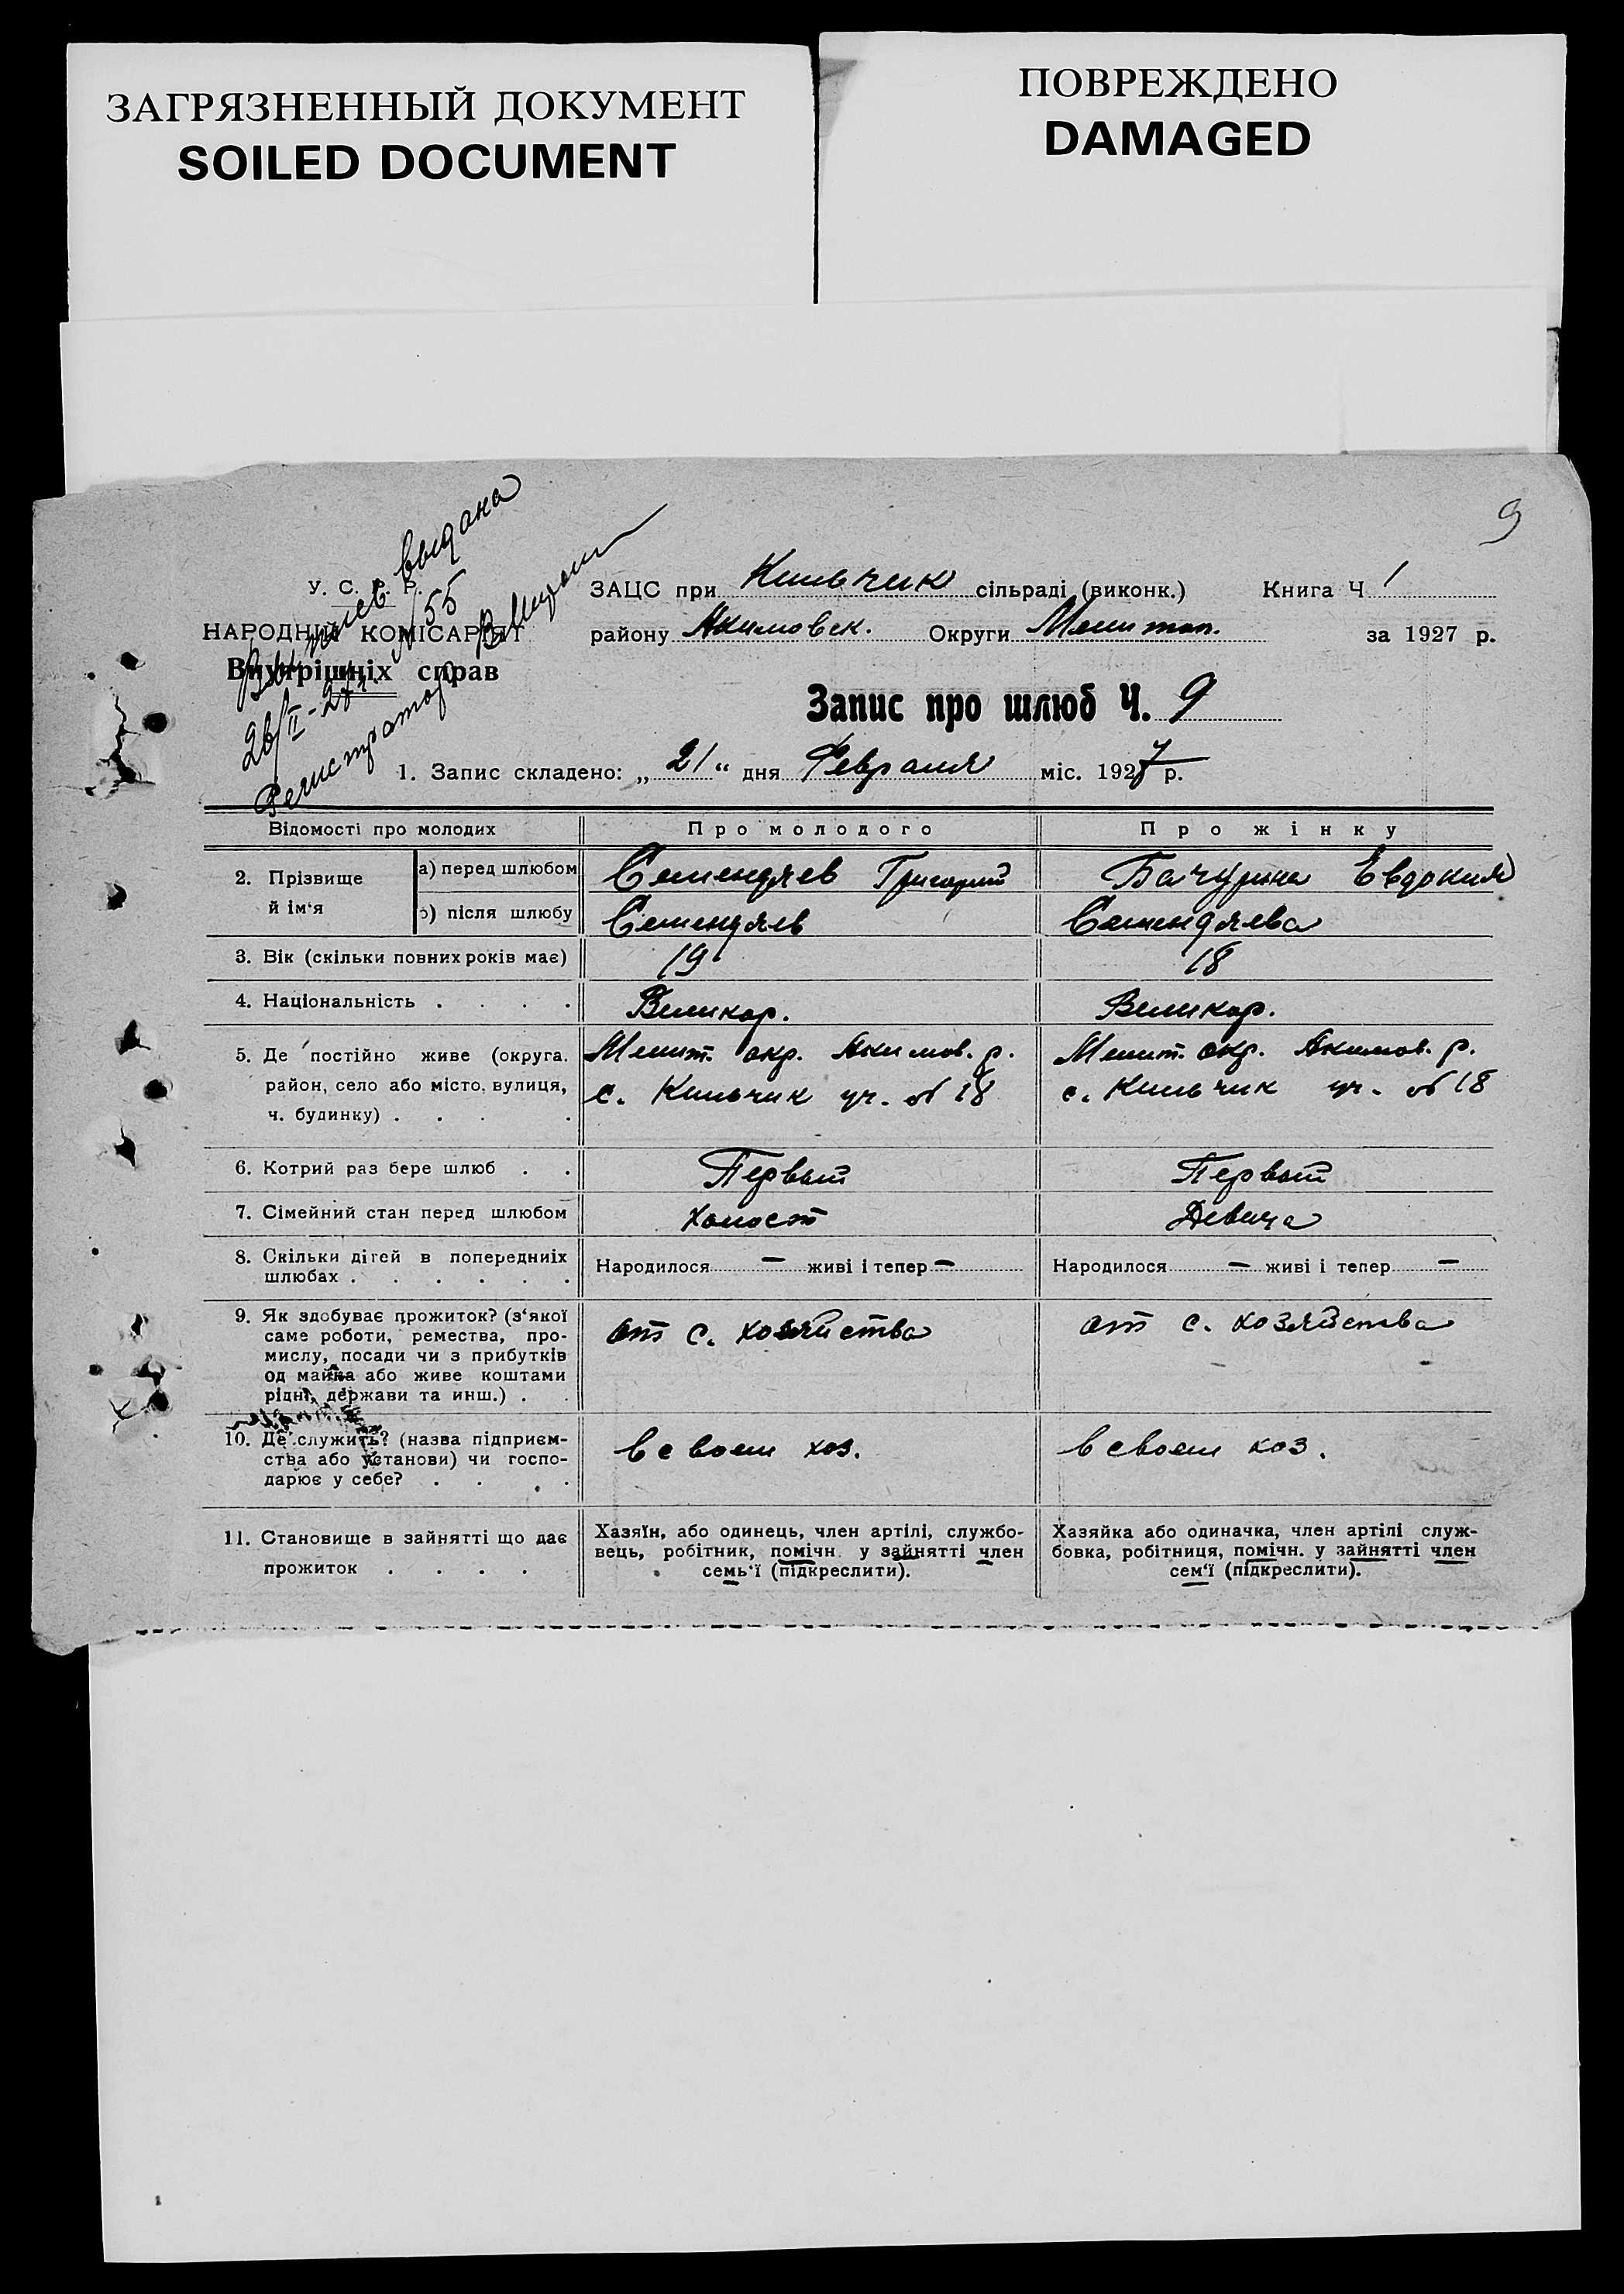 ЗАГРЯЗНЕННЫЙ ДОКУМЕНТ
SOILED DOCUMENT
ПОВРЕЖДЕНО
DAMAGED
9
Выпись выдана
26/II-27г. № 55
Регистратор
У. С. Р. Р.
НАРОДНИЙ КОМІСАРІЯТ
Внутрішніх справ
ЗАЦС при Кильчик сільраді (виконк.) Книга Ч 1
району Акимовск. Округи Мелитоп. за 1927 р.
Запис про шлюб Ч. 9
1. Запис складено: „ 21 “ дня Февраля міс. 1927 р.
Відомості про молодих Про молодого Про жінку
2. Прізвище й ім‘я а) перед шлюбом Семендяев Григорий Бачурина Евдокия
б) після шлюбу Семендяев Семендяева
3. Вік (скільки повних років має) 19 18
4. Національність . . . . Великор. Великор.
5. Де постійно живе (округа. Мелит. окр. Акимов. р. Мелит. окр. Акимов. р.
район, село або місто, вулиця, с. Кильчик уч. № 18 с. Кильчик уч. № 18
ч. будинку) . . . .
6. Котрий раз бере шлюб . . Первый Первый
7. Сімейний стан перед шлюбом Холост Девица
8. Скільки дітей в попередніх Народилося — живі і тепер — Народилося — живі і тепер —
шлюбах . . . . . .
9. Як здобуває прожиток? (з‘якої от с. хозяйства от с. хозяйства
саме роботи, ремества, про-
мислу, посади чи з прибутків
од майна або живе коштами
рідні, держави та инш.) . .
10. Де служить? (назва підприєм- в своем хоз. в своем хоз.
ства або установи) чи госпо-
дарює у себе? . . .
11. Становище в зайнятті що дає
прожиток . . . .
Хазяїн, або одинець, член артілі, службо-
вець, робітник, помічн. у зайнятті член
семь‘ї (підкреслити).
Хазяйка або одиначка, член артілі служ-
бовка, робітниця, помічн. у зайнятті член
сем‘ї (підкреслити).